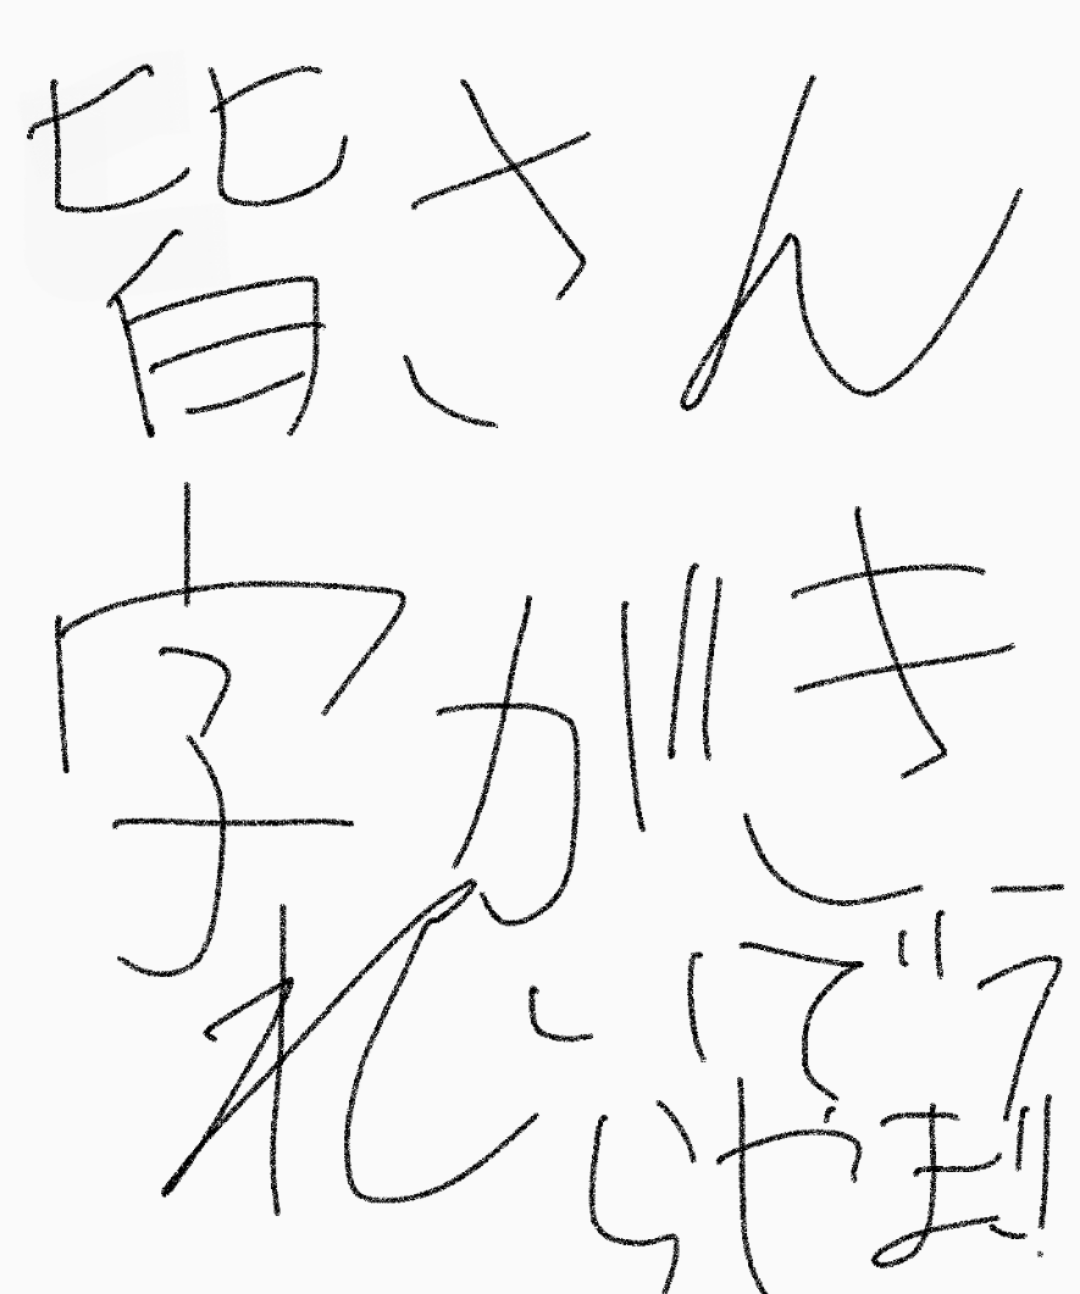 皆さん
字がき
れいでう
らやま!!